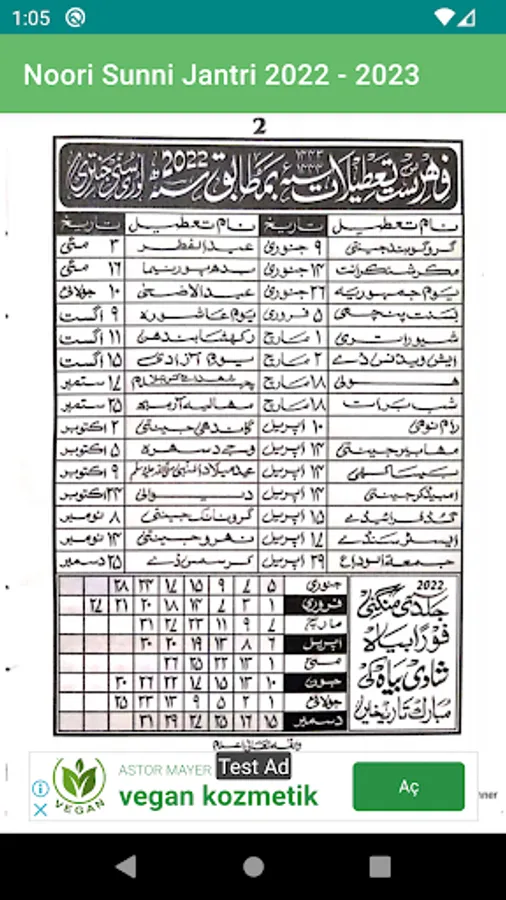 1:05
Noori Sunni Jantri 2022 - 2023
2
فہرست تعطیلات ۱۴۴۳ ۱۴۴۴ بمطابق 2022 نوری سنی جنتری
نام تعطیل تاریخ نام تعطیل تاریخ
گروگوبند جینتی ۹ جنوری عیدالفطر ۳ مئی
مکر شنکرانت ۱۴ جنوری بدھ پورنیما ۱۶ مئی
یوم جمہوریہ ۲۶ جنوری عیدالاضحی ۱۰ جولائی
بسنت پنچمی ۵ فروری یوم عاشورہ ۹ اگست
شیوراتری ۱ مارچ رکھشا بندھن ۱۱ اگست
ایش ویڈنس ڈے ۲ مارچ یوم آزادی ۱۵ اگست
ہولی ۱۸ مارچ ۱۷ ستمبر
شب برات ۱۸ مارچ مہالیہ آرمبھ ۲۵ ستمبر
رام نومی ۱۰ اپریل گاندھی جینتی ۲ اکتوبر
مہابیر جینتی ۱۴ اپریل وجے دسہرہ ۵ اکتوبر
بیساکھی ۱۴ اپریل عید میلادالنبی صلی اللہ علیہ وسلم ۹ اکتوبر
امبیڈکر جینتی ۱۴ اپریل دیوالی ۲۴ اکتوبر
گڈ فرائیڈے ۱۵ اپریل گرونانک جینتی ۸ نومبر
ایسٹر سنڈے ۱۷ اپریل نہرو جینتی ۱۴ نومبر
جمعۃ الوداع ۲۹ اپریل کرسمس ڈے ۲۵ دسمبر
2022
جلدی منگنی
فوراً بیاہ
شادی بیاہ کی
مبارک تاریخیں
جنوری ۵ ۷ ۹ ۱۵ ۱۷ ۲۴ ۲۸
فروری ۱ ۳ ۷ ۱۴ ۱۸ ۲۰ ۲۱ ۲۷
مارچ ۷ ۹ ۱۱ ۲۳ ۲۷ ۳۱
اپریل ۶ ۸ ۱۳ ۱۹ ۲۰ ۳۰
مئی ۱ ۱۳ ۲۳ ۲۵ ۲۶
جون ۱۰ ۱۳ ۱۵ ۱۷ ۲۲ ۲۶ ۳۰
جولائی ۱ ۲ ۵ ۹ ۱۳ ۲۳ ۲۵
دسمبر ۱۵ ۱۲ ۲۵ ۲۷ ۲۹ ۳۱
ASTOR MAYER
Test Ad
vegan kozmetik
VEGAN
Aç